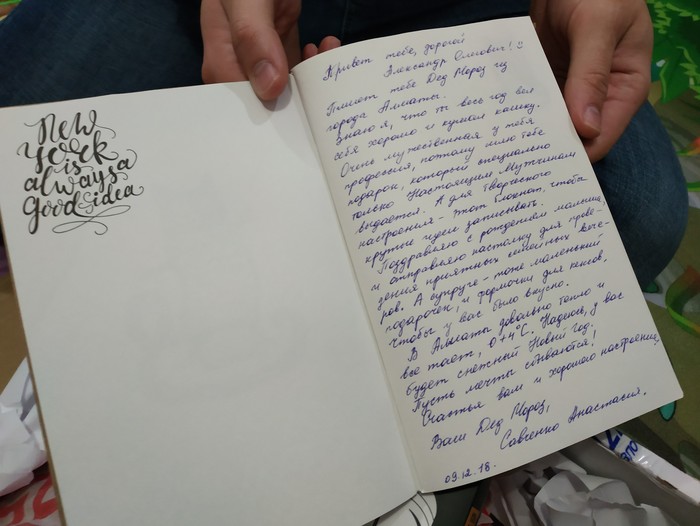 New
York
is
always a
Good idea
Привет тебе, дорогой
Александр Олегович! :)
Пишет тебе Дед Мороз из
города Алматы.
Знаю я, что ты весь год вел
себя хорошо и кушал кашку.
Очень мужественная у тебя
профессия, поэтому шлю тебе
подарок, который специально
только Настоящим Мужчинам
выдается. А для творческого
настроения - этот блокнот, чтобы
крутые идеи записывать.
Поздравляю с рождением малыша,
и отправляю настолку для прове-
дения приятных семейных вече-
ров. А супруге - тоже маленький
подарочек, и формочки для кексов,
чтобы у вас было вкусно.
В Алматы довольно тепло и
все тает, 0+4°C. Надеюсь, у вас
будет снежный Новый год.
Пусть мечты сбываются!
Счастья вам и хорошего настроения,
Ваш Дед Мороз,
Савченко Анастасия.
09.12.18.